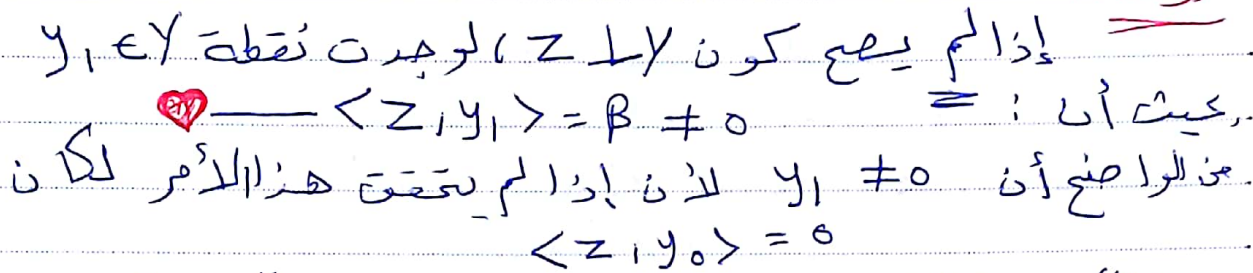 إذا لم يصح كون Z ⊥ Y، لوجدت نقطة y₁ ∈ Y
بحيث أن : <z, y₁> = β ≠ 0
من الواضح أن y₁ ≠ 0 لأن إذا لم يتحقق هذا الأمر لكان
<z, y₀> = 0